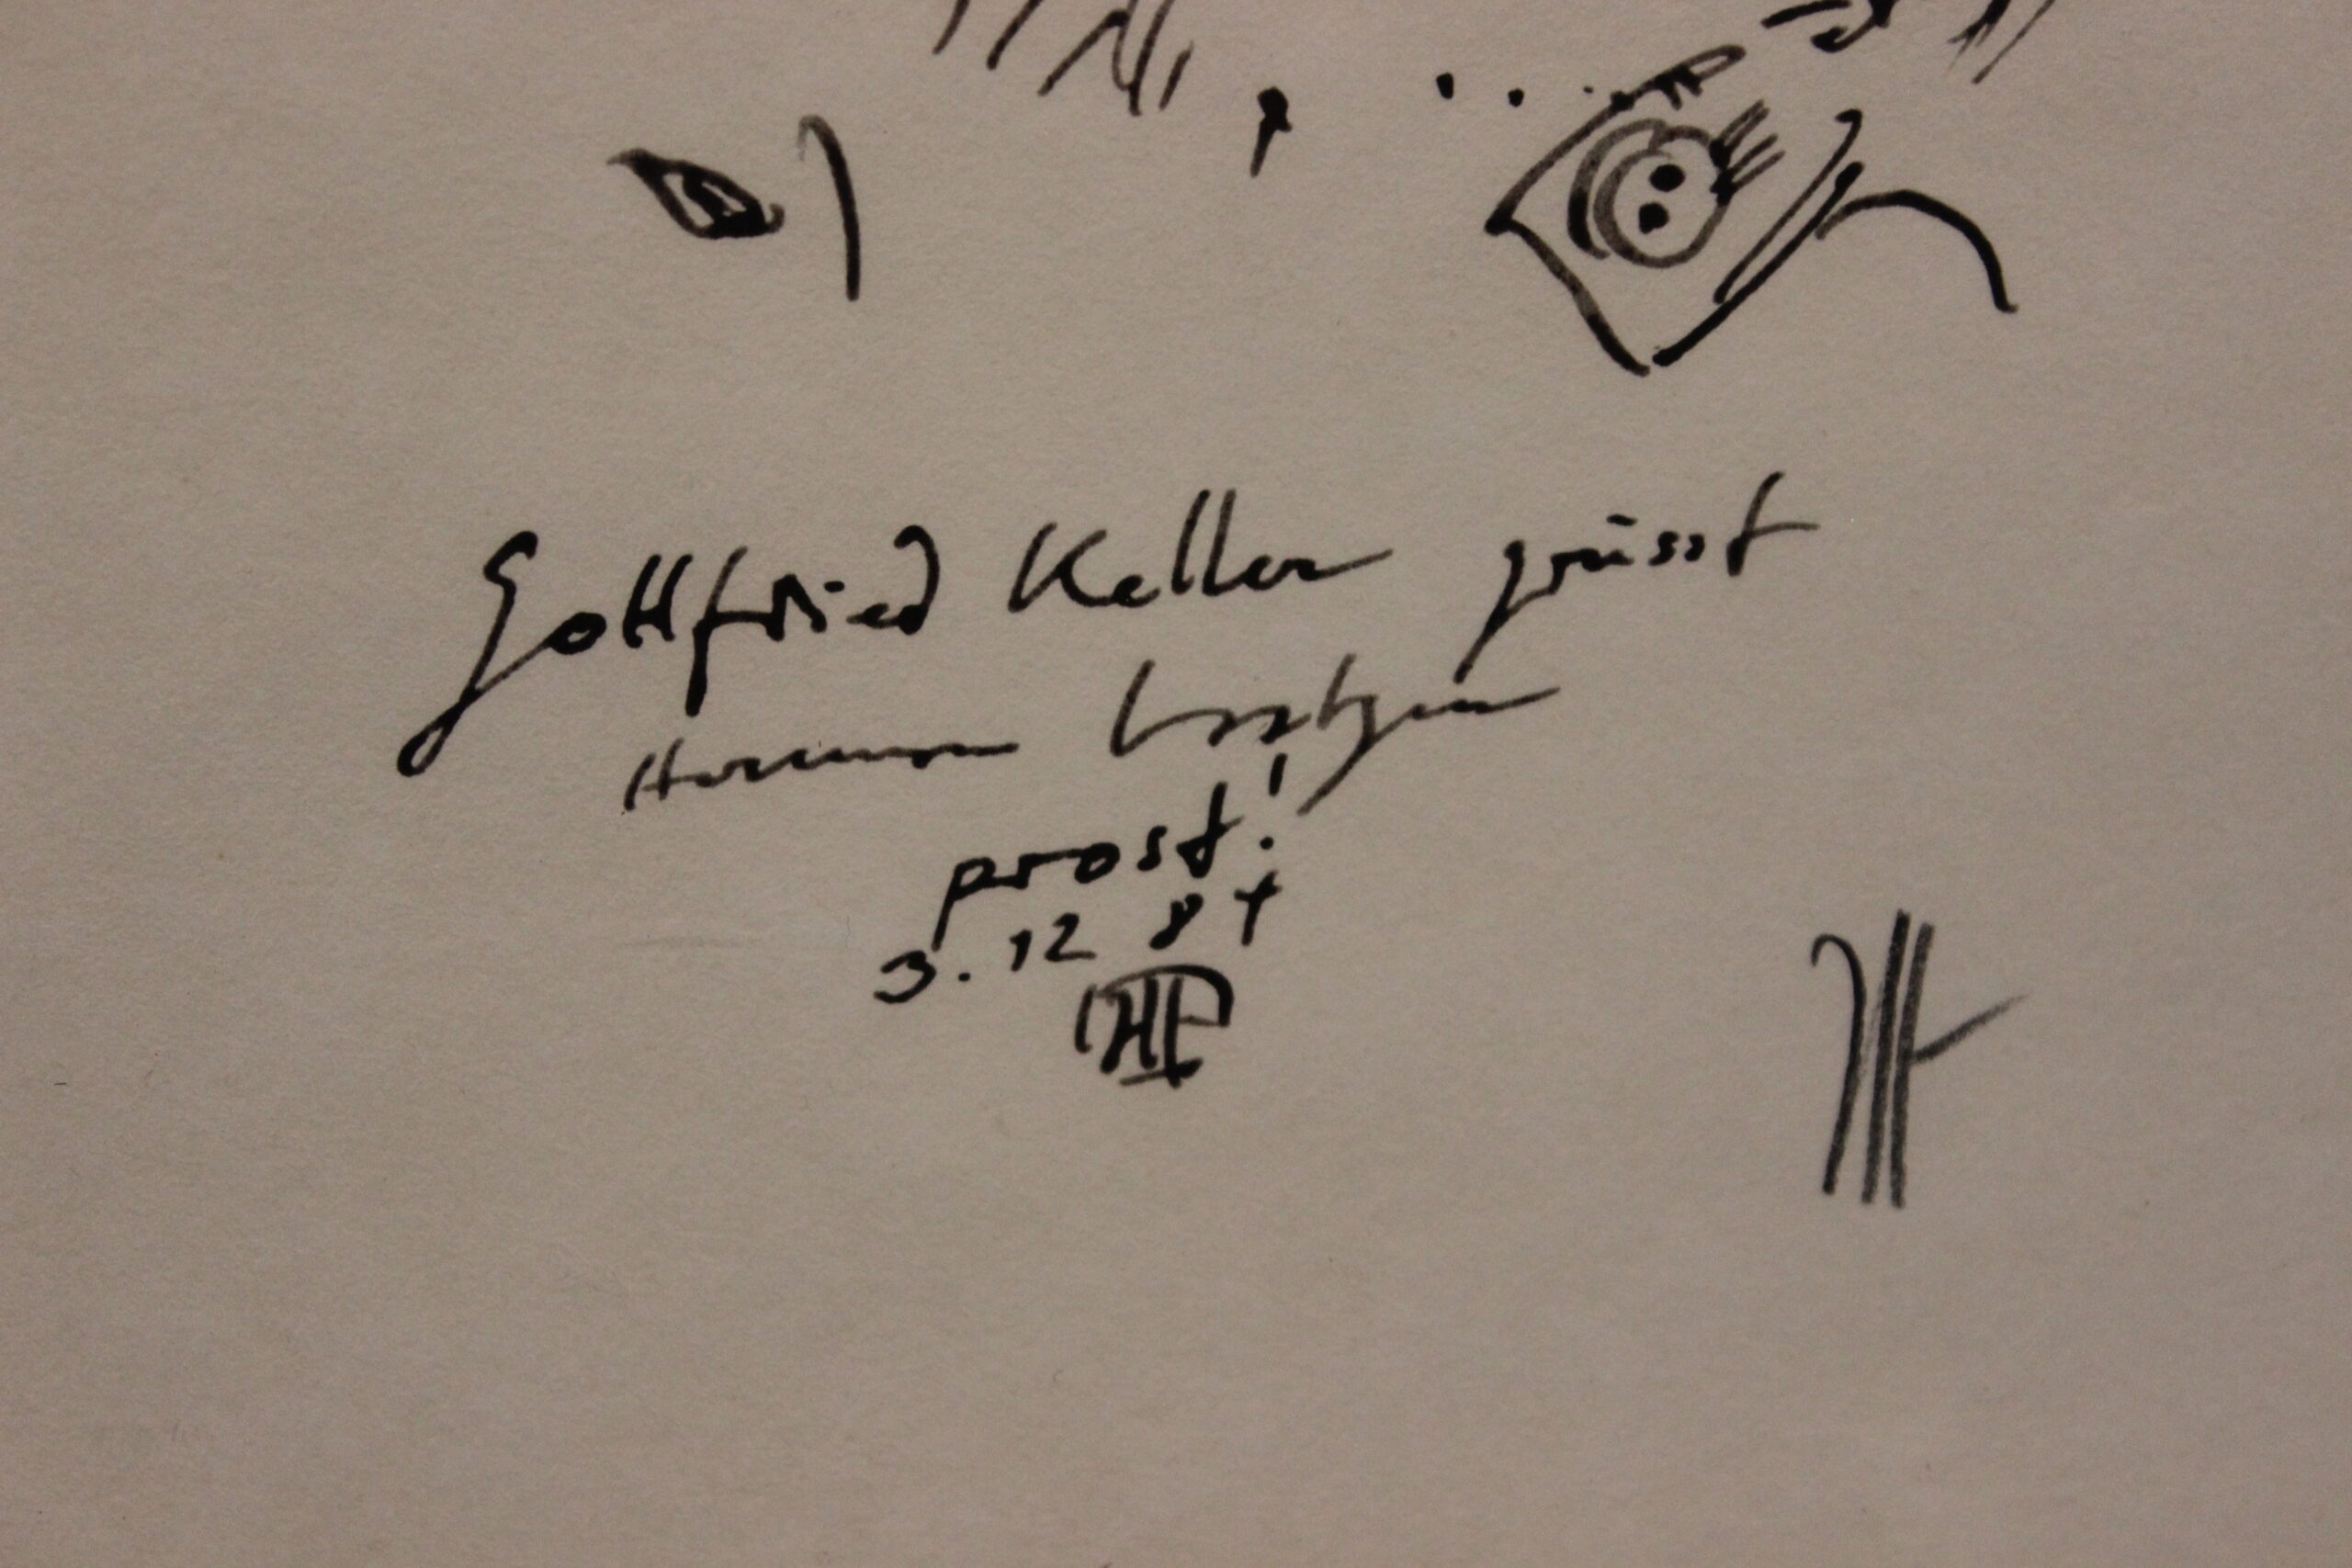 Gottfried Keller grüsst
Hermann
prost!
3.12 84